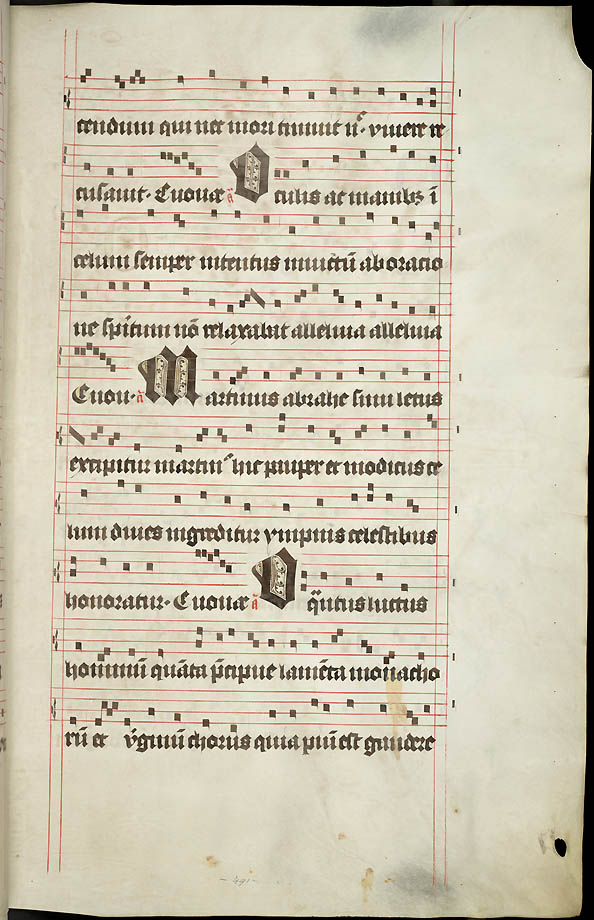 cendum qui nec mori timuit nᶜ viuere re
cusauit. Euouae a̅ Oculis ac manibꝫ ī
celum semper intentus inuictū ab oracio
ne spiritum nō relaxabat alleluia alleluia
Euou. a̅ Martinus abrahe sinu letus
excipitur martinꝰ hic pauper et modicus ce
lum diues ingreditur ympnis celestibus
honoratur. Euouae a̅ O quātus luctus
hominū quāta p̄cipue lamēta monacho
rū et v̄ginū chorus quia piū est gaudere